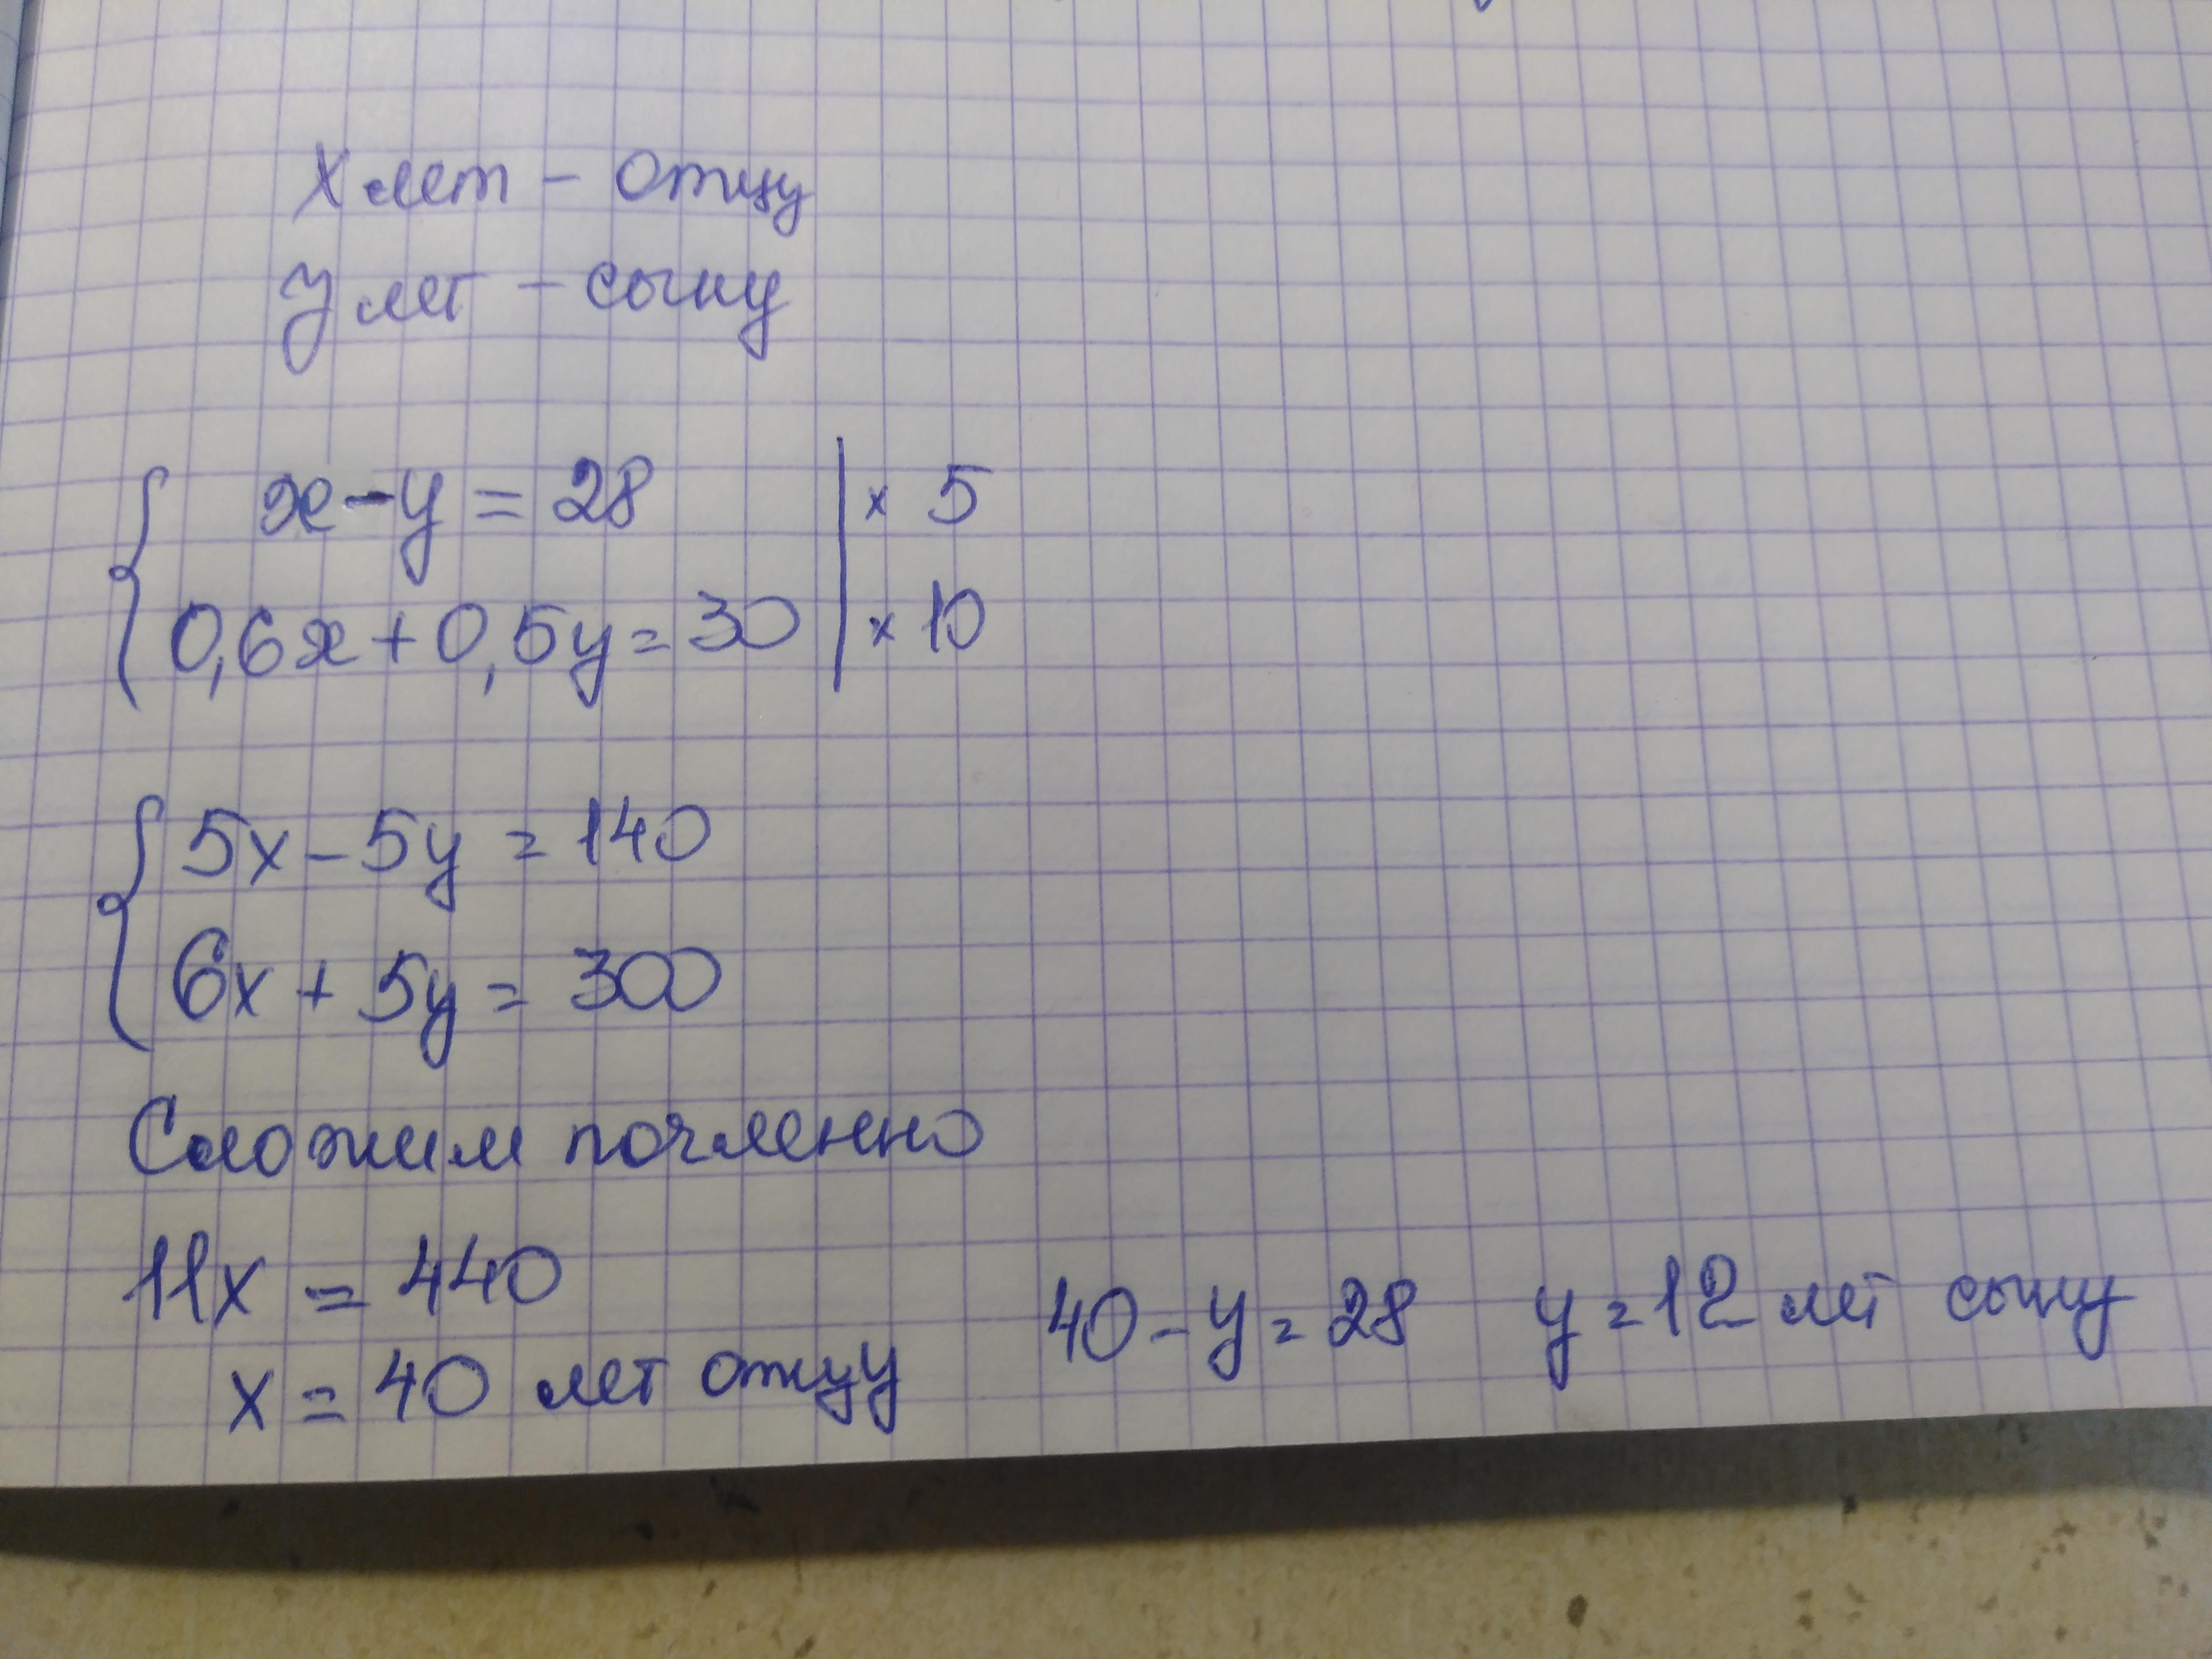 x лет - отцу
y лет - сыну
x-y = 28 | x 5
0,6x+0,5y=30 | x 10
5x-5y = 140
6x+5y = 300
Сложим почленно
11x = 440
x = 40 лет отцу
40-y=28 y=12 лет сыну